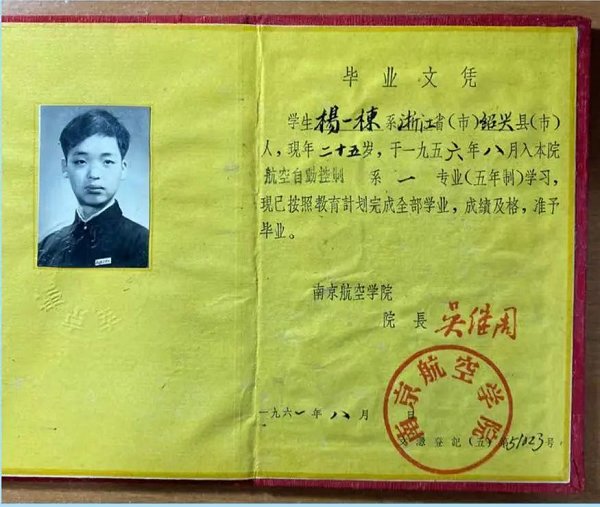 毕业文凭
学生楊一棟系浙江省(市)绍兴县(市)
人,现年二十五岁,于一九五六年八月入本院
航空自動控制 系一 专业(五年制)学习,
现已按照教育計划完成全部学业,成績及格,准予
毕业。
南京航空学院
院 長 吴继周
南京航空学院
一九六一年八月 日
登記(五)第51023号